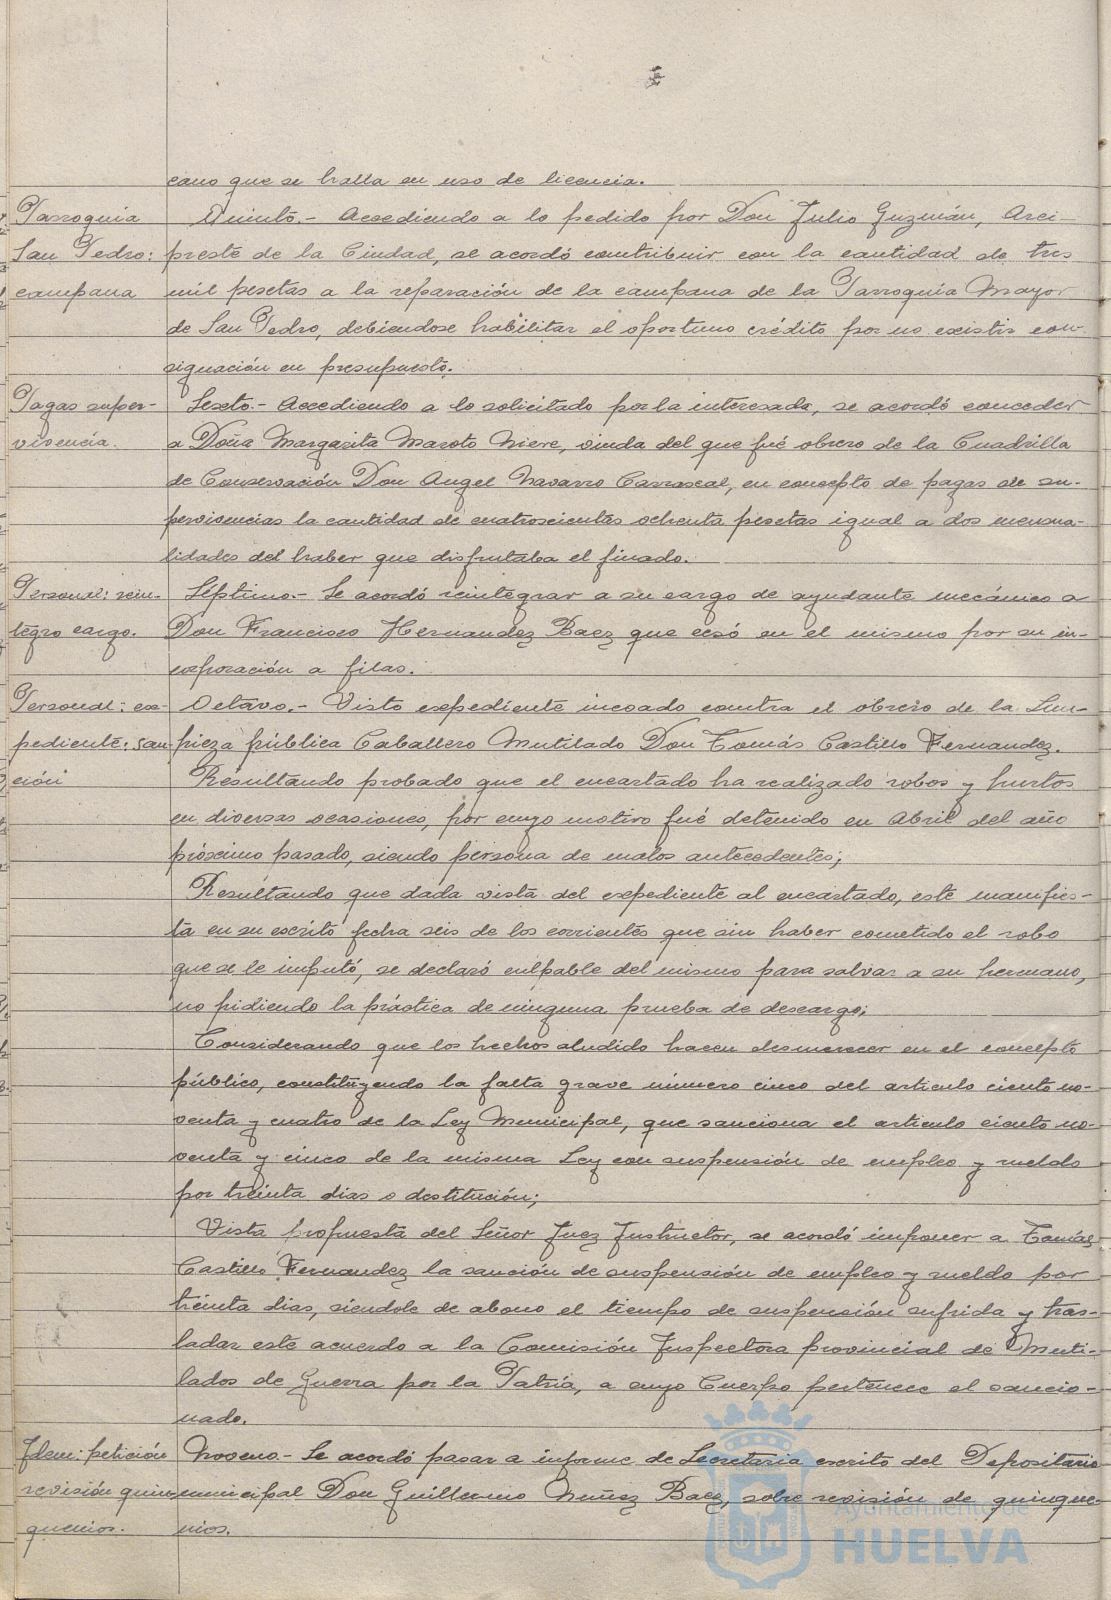 cano que se halla en uso de licencia.
Parroquia
San Pedro:
campana
Quinto.- Accediendo a lo pedido por Don Julio Guzmán, Arci-
preste de la Ciudad, se acordó contribuir con la cantidad de tres
mil pesetas a la reparación de la campana de la Parroquia Mayor
de San Pedro, debiendose habilitar el oportuno crédito por no existir con-
signación en presupuesto.
Pagas super-
vivencia.
Sexto.- Accediendo a lo solicitado por la interesada, se acordó conceder
a Doña Margarita Maroto Niere, viuda del que fué obrero de la Cuadrilla
de Conservación Don Angel Navarro Carrascal, en concepto de pagas de su-
pervivencias la cantidad de cuatrocientas ochenta pesetas igual a dos mensua-
lidades del haber que disfrutaba el finado.
Personal: rein-
tegro cargo.
Séptimo.- Se acordó reintegrar a su cargo de ayudante mecánico a
Don Francisco Hernandez Baez que cesó en el mismo por su in-
corporación a filas.
Personal: ex-
pediente: san-
ción
Octavo.- Visto expediente incoado contra el obrero de la Lim-
pieza pública Caballero Mutilado Don Tomás Castillo Fernandez.
Resultando probado que el encartado ha realizado robos y hurtos
en diversas ocasiones, por cuyo motivo fué detenido en Abril del año
próximo pasado, siendo persona de malos antecedentes;
Resultando que dada vista del expediente al encartado, este manifies-
ta en su escrito fecha seis de los corrientes que sin haber cometido el robo
que se le imputó, se declaró culpable del mismo para salvar a su hermano,
no pidiendo la práctica de ninguna prueba de descargo;
Considerando que los hechos aludido hacen desmerecer en el concepto
público, constituyendo la falta grave número cinco del articulo ciento no-
venta y cuatro de la Ley Municipal, que sanciona el articulo ciento no-
venta y cinco de la misma Ley con suspensión de empleo y sueldo
por treinta dias o destitución;
Vista propuesta del Señor Juez Instructor, se acordó imponer a Tomás
Castillo Fernandez la sanción de suspensión de empleo y sueldo por
treinta dias, siendole de abono el tiempo de suspensión sufrida y tras-
ladar este acuerdo a la Comisión Inspectora provincial de Muti-
lados de Guerra por la Patria, a cuyo Cuerpo pertenece el sancio-
nado.
Idem: petición
revisión quin-
quenios.
Noveno.- Se acordó pasar a informe de Secretaria escrito del Depositario
municipal Don Guillermo Nuñez Baez, sobre revisión de quinque-
nios.
Ayuntamiento de
HUELVA